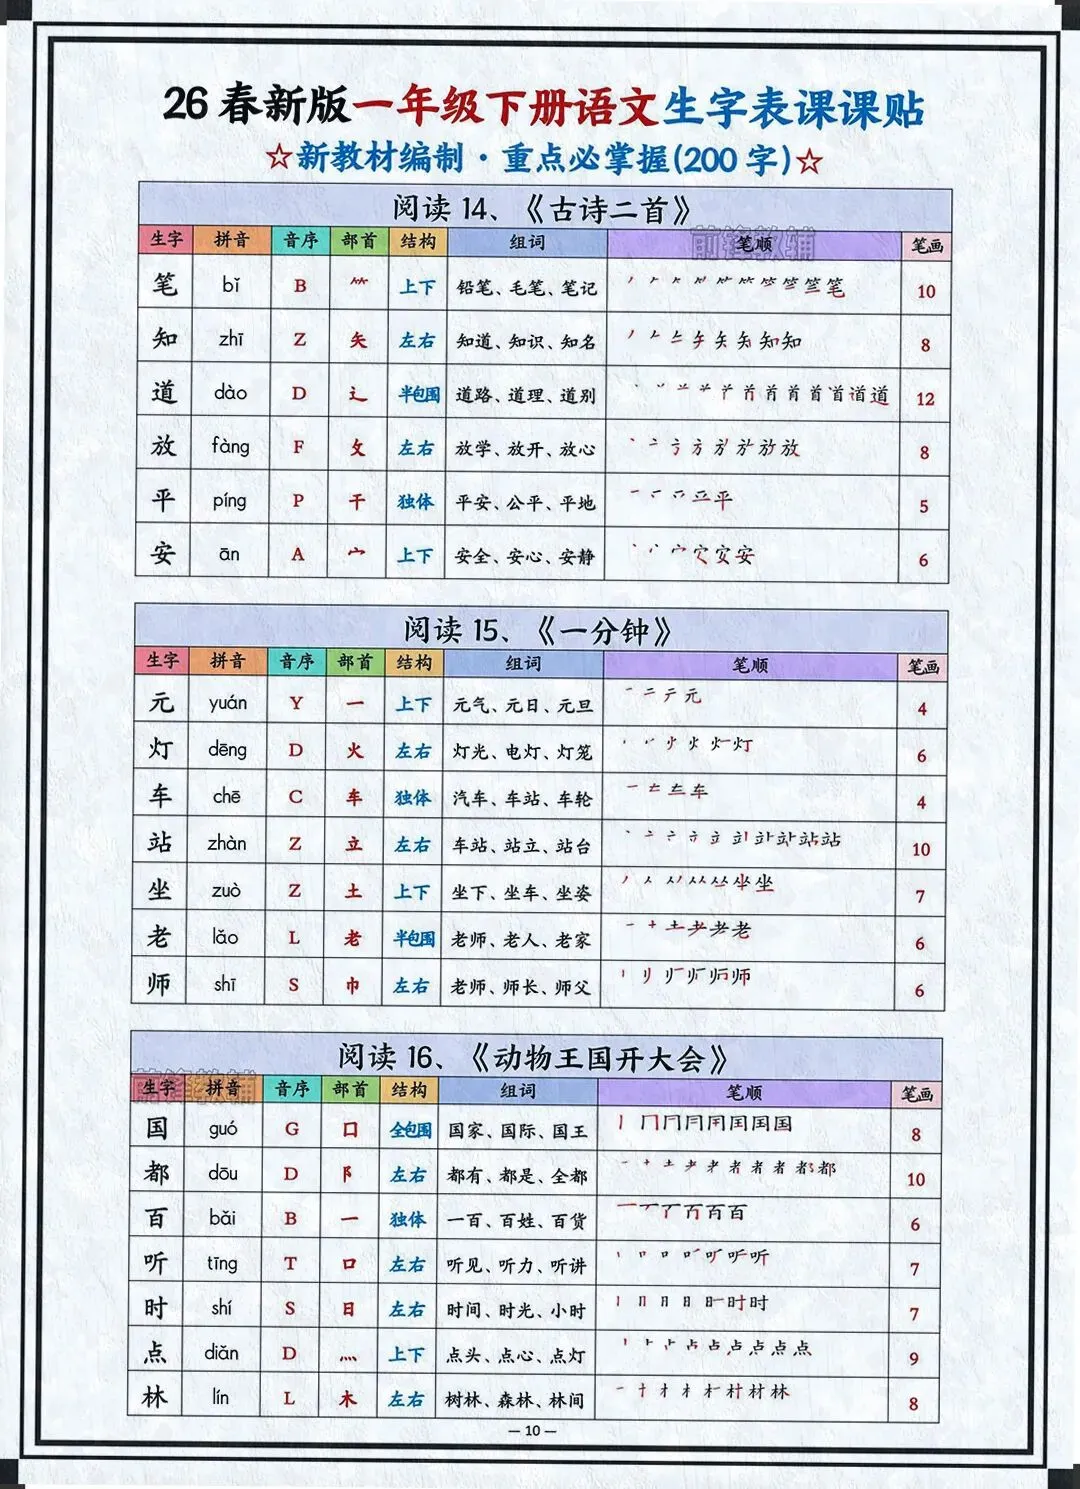 26春新版一年级下册语文生字表课课贴
☆新教材编制·重点必掌握(200字)☆
阅读 14、《古诗二首》
生字 拼音 音序 部首 结构 组词 笔顺 笔画
前锋教辅
笔 bǐ B ⺮ 上下 铅笔、毛笔、笔记 10
知 zhī Z 矢 左右 知道、知识、知名 8
道 dào D 辶 半包围 道路、道理、道别 12
放 fàng F 攵 左右 放学、放开、放心 8
平 píng P 干 独体 平安、公平、平地 5
安 ān A 宀 上下 安全、安心、安静 6
阅读 15、《一分钟》
生字 拼音 音序 部首 结构 组词 笔顺 笔画
元 yuán Y 一 上下 元气、元日、元旦 4
灯 dēng D 火 左右 灯光、电灯、灯笼 6
车 chē C 车 独体 汽车、车站、车轮 4
站 zhàn Z 立 左右 车站、站立、站台 10
坐 zuò Z 土 上下 坐下、坐车、坐姿 7
老 lǎo L 老 半包围 老师、老人、老家 6
师 shī S 巾 左右 老师、师长、师父 6
阅读 16、《动物王国开大会》
生字 拼音 音序 部首 结构 组词 笔顺 笔画
前锋教辅
国 guó G 口 全包围 国家、国际、国王 8
都 dōu D 阝 左右 都有、都是、全都 10
百 bǎi B 一 独体 一百、百姓、百货 6
听 tīng T 口 左右 听见、听力、听讲 7
时 shí S 日 左右 时间、时光、小时 7
点 diǎn D 灬 上下 点头、点心、点灯 9
林 lín L 木 左右 树林、森林、林间 8
— 10 —